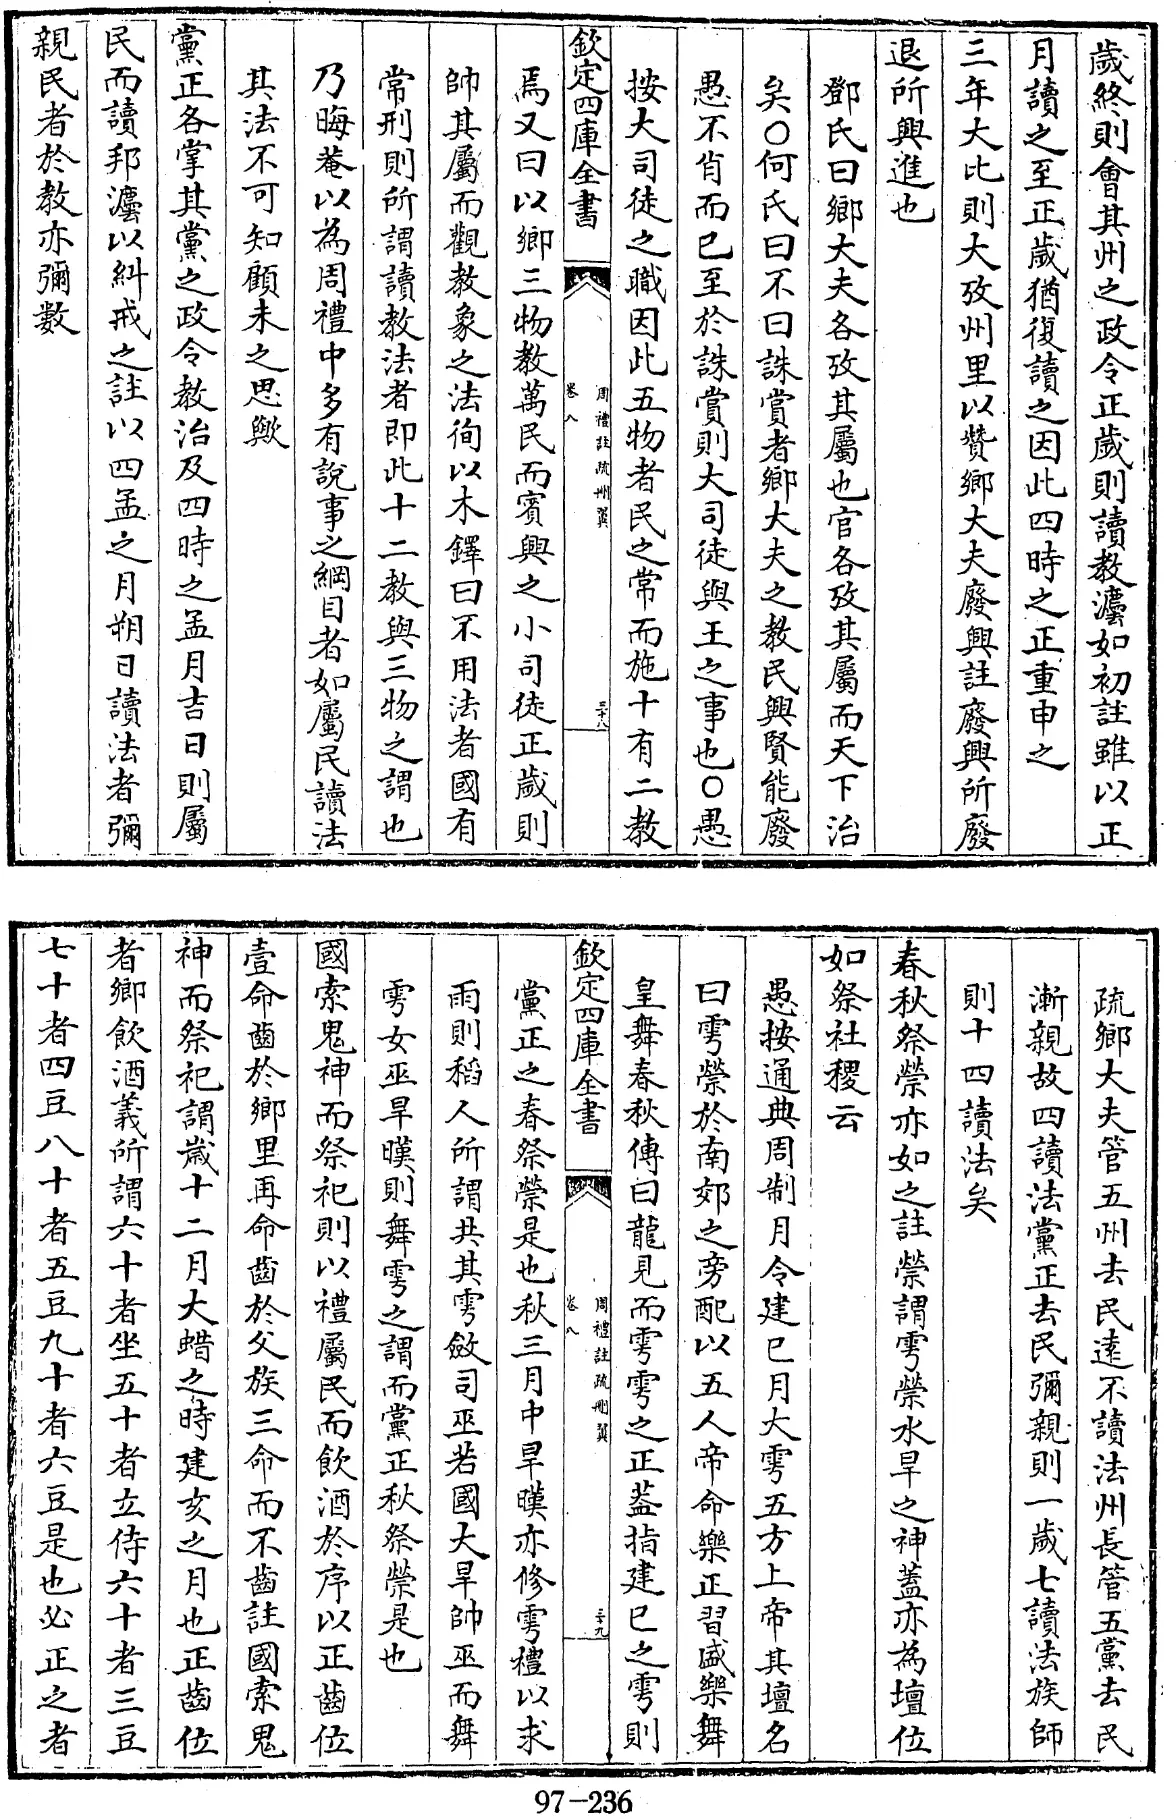 歲終則會其州之政令正歲則讀教灋如初註雖以正
月讀之至正歲猶復讀之因此四時之正重申之
三年大比則大攷州里以贊鄉大夫廢興註廢興所廢
退所興進也
鄧氏曰鄉大夫各攷其屬也官各攷其屬而天下治
矣○何氏曰不曰誅賞者鄉大夫之教民興賢能廢
愚不肖而已至於誅賞則大司徒與王之事也○愚
按大司徒之職因此五物者民之常而施十有二教
欽定四庫全書
周禮註疏刪翼
卷八
三十八
焉又曰以鄉三物教萬民而賓興之小司徒正歲則
帥其屬而觀教象之法徇以木鐸曰不用法者國有
常刑則所謂讀教法者即此十二教與三物之謂也
乃晦菴以為周禮中多有說事之綱目者如屬民讀法
其法不可知顧未之思歟
黨正各掌其黨之政令教治及四時之孟月吉日則屬
民而讀邦灋以糾戒之註以四孟之月朔日讀法者彌
親民者於教亦彌數
疏鄉大夫管五州去民遠不讀法州長管五黨去民
漸親故四讀法黨正去民彌親則一歲七讀法族師
則十四讀法矣
春秋祭禜亦如之註禜謂雩禜水旱之神蓋亦為壇位
如祭社稷云
愚按通典周制月令建巳月大雩五方上帝其壇名
曰雩禜於南郊之旁配以五人帝命樂正習盛樂舞
皇舞春秋傳曰龍見而雩雩之正葢指建巳之雩則
欽定四庫全書
周禮註疏刪翼
卷八
三十九
黨正之春祭禜是也秋三月中旱暵亦修雩禮以求
雨則稻人所謂共其雩斂司巫若國大旱帥巫而舞
雩女巫旱暵則舞雩之謂而黨正秋祭禜是也
國索鬼神而祭祀則以禮屬民而飲酒於序以正齒位
壹命齒於鄉里再命齒於父族三命而不齒註國索鬼
神而祭祀謂歲十二月大蜡之時建亥之月也正齒位
者鄉飲酒義所謂六十者坐五十者立侍六十者三豆
七十者四豆八十者五豆九十者六豆是也必正之者
97-236